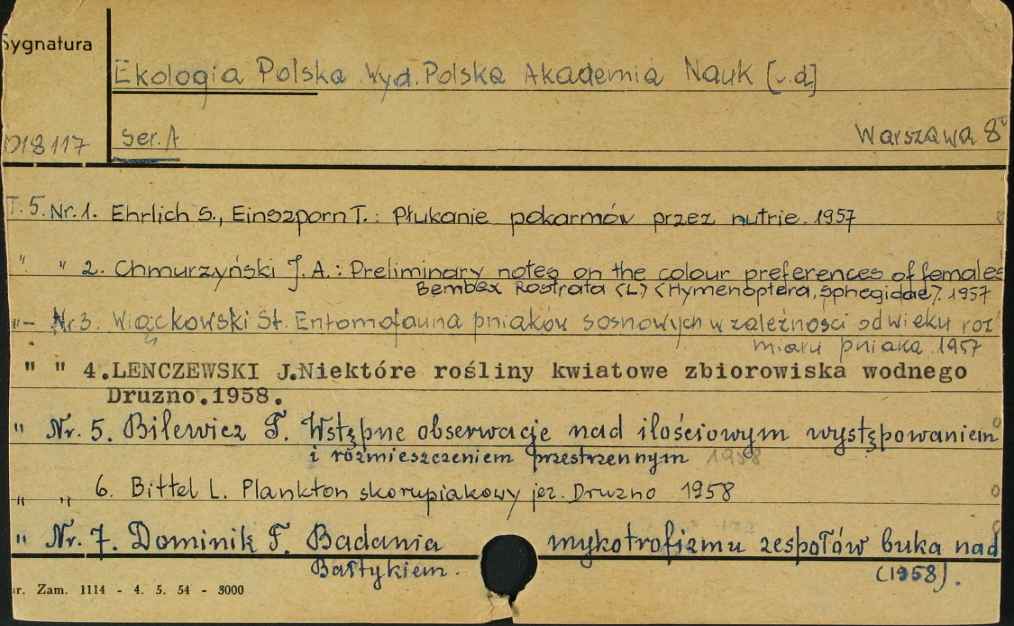 Sygnatura
Ekologia Polska Wyd. Polska Akademia Nauk [v.d]
D18117 Ser. A Warszawa 8°
T. 5. Nr. 1. Ehrlich S., Einszporn T.: Płukanie pokarmów przez nutrie. 1957
" " 2. Chmurzyński J. A.: Preliminary notes on the colour preferences of females
Bembex Rostrata (L) (Hymenoptera, Sphegidae). 1957
" Nr 3. Wiąckowski St. Entomofauna pniaków sosnowych w zależności od wieku roz
miaru pniaka. 1957
" " 4.LENCZEWSKI J.Niektóre rośliny kwiatowe zbiorowiska wodnego
Druzno.1958.
" Nr. 5. Bilewicz F. Wstępne obserwacje nad ilościowym występowaniem
i rozmieszczeniem przestrzennym 1958
" " 6. Bittel L. Plankton skorupiakowy jez. Druzno 1958
" Nr. 7. Dominik T. Badania mykotrofizmu zespołów buka nad
Bałtykiem. (1958).
r. Zam. 1114 - 4. 5. 54 - 3000